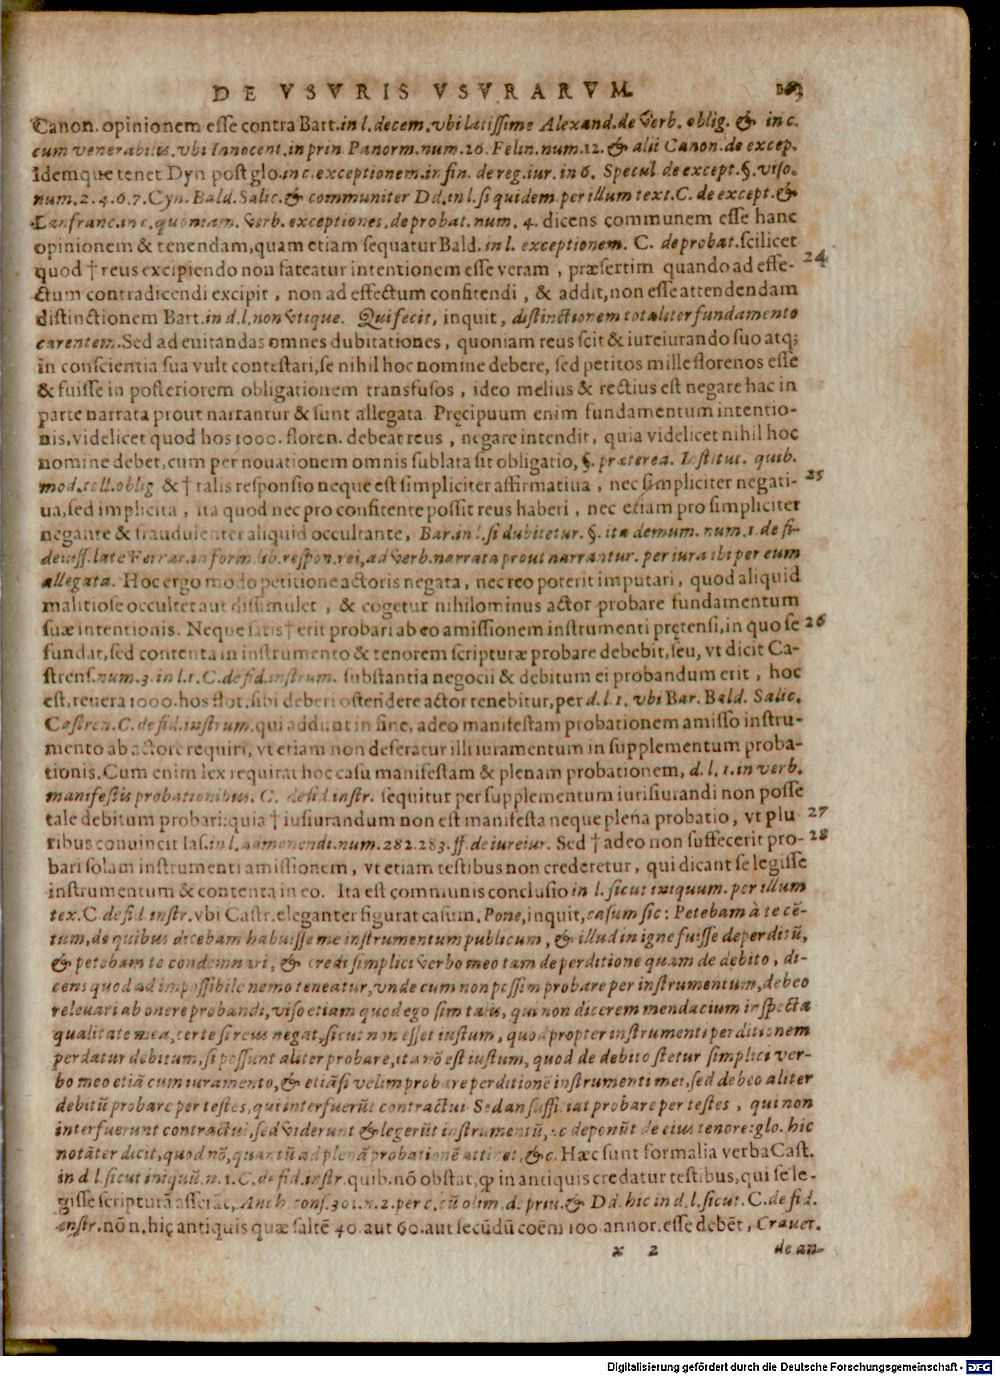 DE VSVRIS VSVRARVM.
Canon. opinionem esse contra Bart. in l. decem. vbi latissime Alexand. de verb. oblig. & in c.
cum venerabilis. vbi Innocent. in prin Panorm. num. 26. Felin. num. 12. & alii Canon. de excep.
Idemque tenet Dyn post glo. in c. exceptionem. in fin. de reg. iur. in 6. Specul de except. §. viso.
num. 2. 4. 6. 7. Cyn. Bald. Salic. & communiter Dd. in l. si quidem per illum text. C. de except. &
Lanfranc. in c. quoniam. verb. exceptiones. de probat. num. 4. dicens communem esse hanc
opinionem & tenendam, quam etiam sequatur Bald. in l. exceptionem. C. de probat. scilicet
quod † reus excipiendo non fateatur intentionem esse veram, præsertim quando ad effe- 24
ctum contradicendi excipit, non ad effectum confitendi, & addit, non esse attendendam
distinctionem Bart. in d. l. non vtique. Qui fecit, inquit, distinctionem totaliter fundamento
carentem. Sed ad euitandas omnes dubitationes, quoniam reus scit & iureiurando suo atq;
in conscientia sua vult contestari, se nihil hoc nomine debere, sed petitos mille florenos esse
& fuisse in posteriorem obligationem transfusos, ideo melius & rectius est negare hac in
parte narrata prout narrantur & sunt allegata Pręcipuum enim fundamentum intentio-
nis, videlicet quod hos 1000. floren. debeat reus, negare intendit, quia videlicet nihil hoc
nomine debet, cum per nouationem omnis sublata sit obligatio, §. præterea. Institut. quib.
mod. toll. oblig & † talis responsio neque est simpliciter affirmatiua, nec simpliciter negati- 25
ua, sed implicita, ita quod nec pro confitente possit reus haberi, nec etiam pro simpliciter
negante & fraudulenter aliquid occultante, Bar. in l. si dubitetur. §. ita demum. num. 1. de fi-
deiuss. late Ferrar. in form. lib. respon. rei, ad verb. narrata prout narrantur. per iura ibi per eum
allegata. Hoc ergo modo petitione actoris negata, nec reo poterit imputari, quod aliquid
malitiose occultet aut dissimulet, & cogetur nihilominus actor probare fundamentum
suæ intentionis. Neque satis † erit probari ab eo amissionem instrumenti prętensi, in quo se 26
fundat, sed contenta in instrumento & tenorem scripturæ probare debebit, seu, vt dicit Ca-
strens. num. 3. in l. 1. C. de fid. instrum. substantia negocii & debitum ei probandum erit, hoc
est, reuera 1000. hos flor. sibi deberi ostendere actor tenebitur, per d. l. 1. vbi Bar. Bald. Salic.
Castren. C. de fid. instrum. qui addunt in fine, adeo manifestam probationem amisso instru-
mento ab actore requiri, vt etiam non deferatur illi iuramentum in supplementum proba-
tionis. Cum enim lex requirat hoc casu manifestam & plenam probationem, d. l. 1. in verb.
manifestis probationibus. C. de fid instr. sequitur per supplementum iurisiurandi non posse
tale debitum probari: quia † iusiurandum non est manifesta neque plena probatio, vt plu 27
ribus conuincit Ias. in l. admonendi. num. 282. 283. ff. de iureiur. Sed † adeo non suffecerit pro- 28
bari solam instrumenti amissionem, vt etiam testibus non crederetur, qui dicant se legisse
instrumentum & contenta in eo. Ita est communis conclusio in l. sicut iniquum. per illum
tex. C. de fid. instr. vbi Castr. eleganter figurat casum. Pone, inquit, casum sic: Petebam à te cē-
tum, de quibus dicebam habuisse me instrumentum publicum, & illud in igne fuisse deperditū,
& petebam te condemnari, & credi simplici verbo meo tam de perditione quam de debito, di-
cens quod ad impossibile nemo teneatur, vnde cum non possim probare per instrumentum, debeo
releuari ab onere probandi, viso etiam quod ego sim talis, qui non dicerem mendacium inspecta
qualitate mea, certe si reus negat, sicut non esset iustum, quod propter instrumenti perditionem
perdatur debitum, si possunt aliter probare, ita nō est iustum, quod de debito stetur simplici ver-
bo meo etiā cum iuramento, & etiāsi velim probare perditionē instrumenti mei, sed debeo aliter
debitū probare per testes, qui interfuerūt contractui Sed an sufficiat probare per testes, qui non
interfuerunt contractui, sed viderunt & legerūt instrumentū, ac deponūt de eius tenore: glo. hic
notāter dicit, quod nō, quantū ad plenā probationē attinet, &c. Hæc sunt formalia verba Cast.
in d l. sicut iniquū. n. 1. C. de fid. instr. quib. nō obstat, ꝙ in antiquis credatur testibus, qui se le-
gisse scripturā asserāt, Anch conf. 301. n. 2. per c. cū olim. d. priu. & Dd. hic in d l. sicut. C. de fid.
instr. nō n. hic antiquis quæ saltē 40. aut 60. aut secūdū coēm 100 annor. esse debēt, Crauet.
x 2 de an-
Digitalisierung gefördert durch die Deutsche Forschungsgemeinschaft - DFG